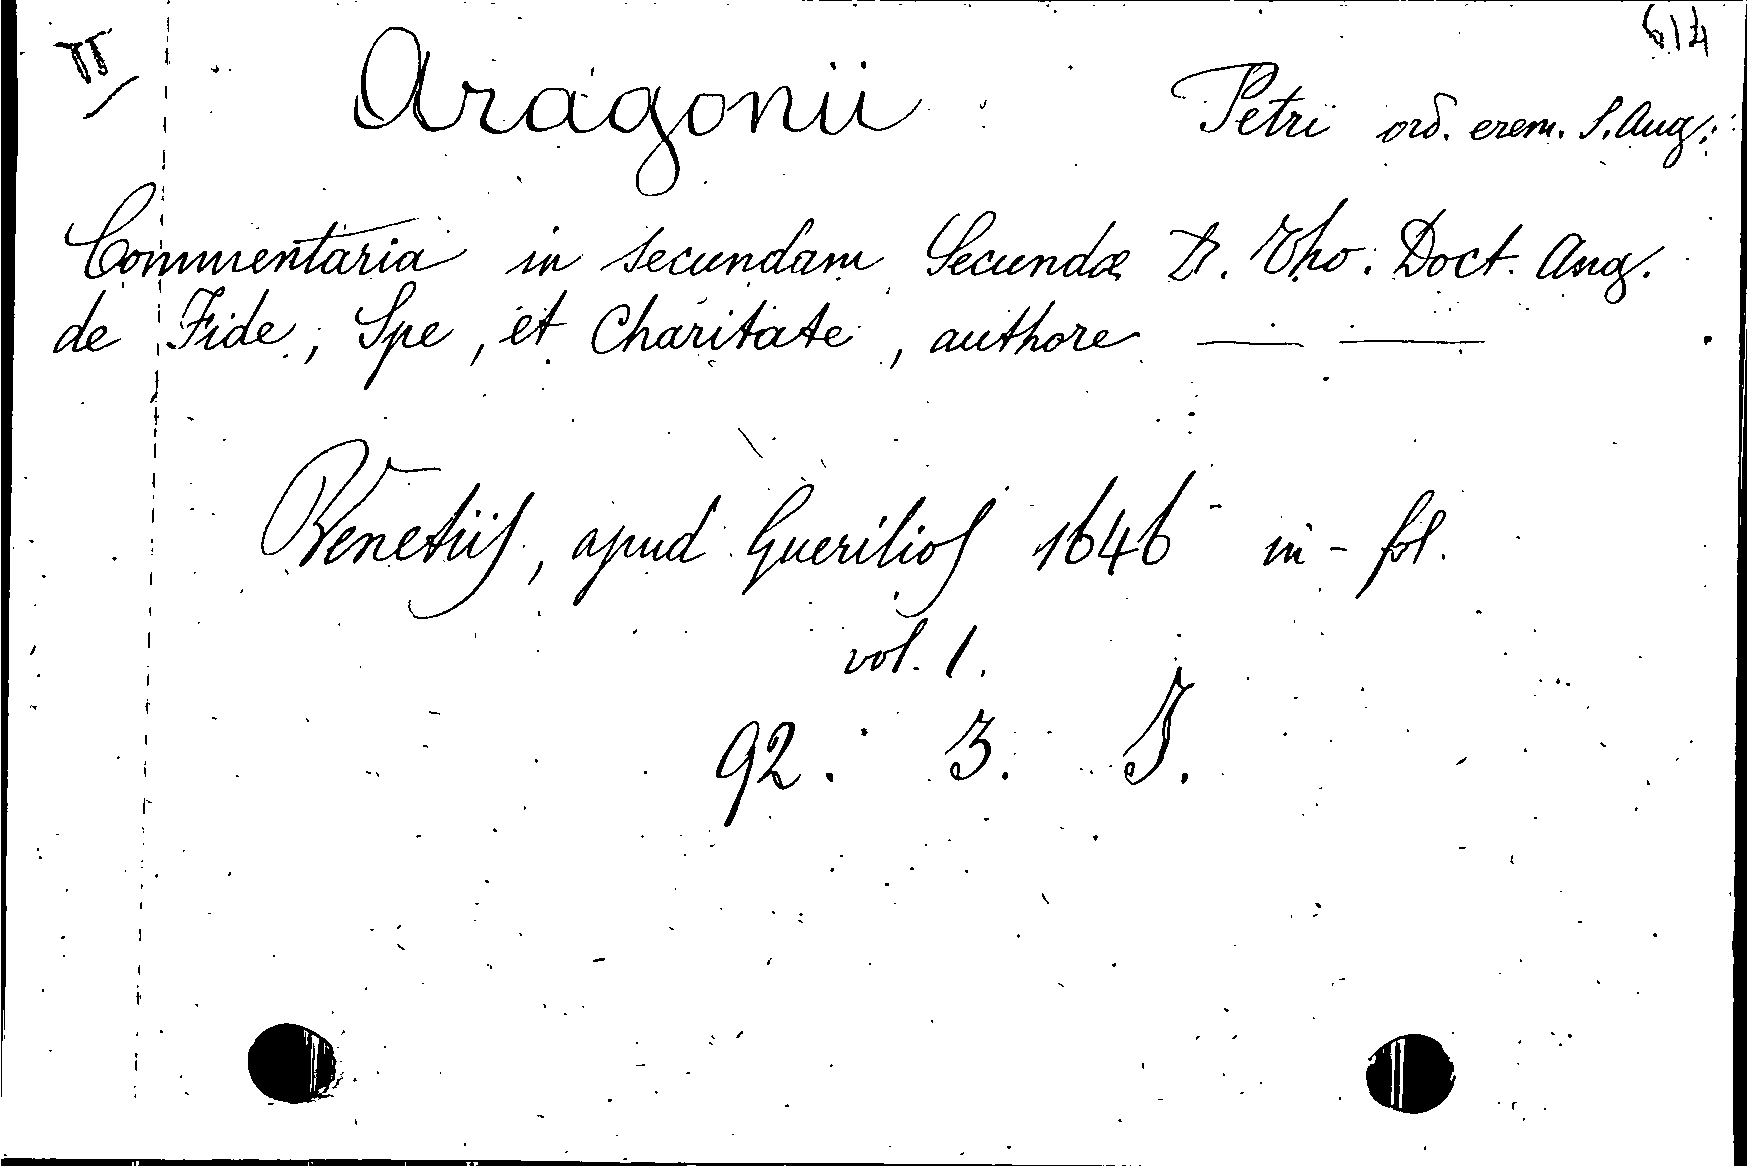 II 614
Aragonii Petri ord. erem. S. Aug.
Commentaria in secundam Secundæ D. Tho. Doct. Ang.
de Fide, Spe, et Charitate, authore — —
Venetiis, apud Guerilios 1646 in-fol.
vol. 1.
92. 3. J.